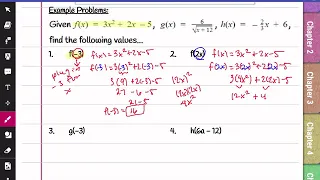 Example Problems:
Given f(x) = 3x² + 2x − 5, g(x) = 6/√(x+12), h(x) = −2/3 x + 6,
find the following values...
1. f(-3) f(x)=3x²+2x-5
f(-3)=3(-3)²+2(-3)-5
3(9)+2(-3)-5
27 -6 -5
21-5
f(-3)=16
2. f(2x) f(x)=3x²+2x-5
f(2x)=3(2x)²+2(2x)-5
(2x)² 3(4x²)+2(2x)-5
(2x)(2x) 12x²+4
4x²
3. g(−3)
4. h(6a − 12)
Chapter 2
Chapter 3
Chapter 4